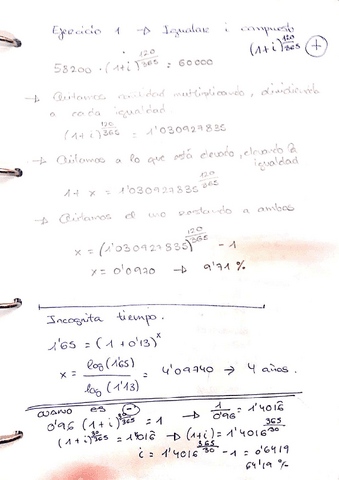 Ejercicio 1 → Igualar i compuesto
(1+i)^120/365 +
58200 · (1+i)^120/365 = 60000
→ Quitamos cantidad multiplicando, dividiendo
a cada igualdad
(1+i)^120/365 = 1'030927835
→ Quitamos a lo que está elevado, elevando la
igualdad
1+ x = 1'030927835^120/365
→ Quitamos el uno restando a ambos
x = (1'030927835)^120/365 - 1
x = 0'0970 → 9'71 %
Incognita tiempo.
1'65 = (1 + 0'13)^x
x = log(1'65) / log(1'13) = 4'09740 → 4 años.
cuando es (-)
0'96 (1+i)^30/365 = 1 → 1/0'96 = 1'4016
(1+i)^30/365 = 1'4016 → (1+i) = 1'4016^365/30
i = 1'4016^365/30 - 1 = 0'6419
64'19 %